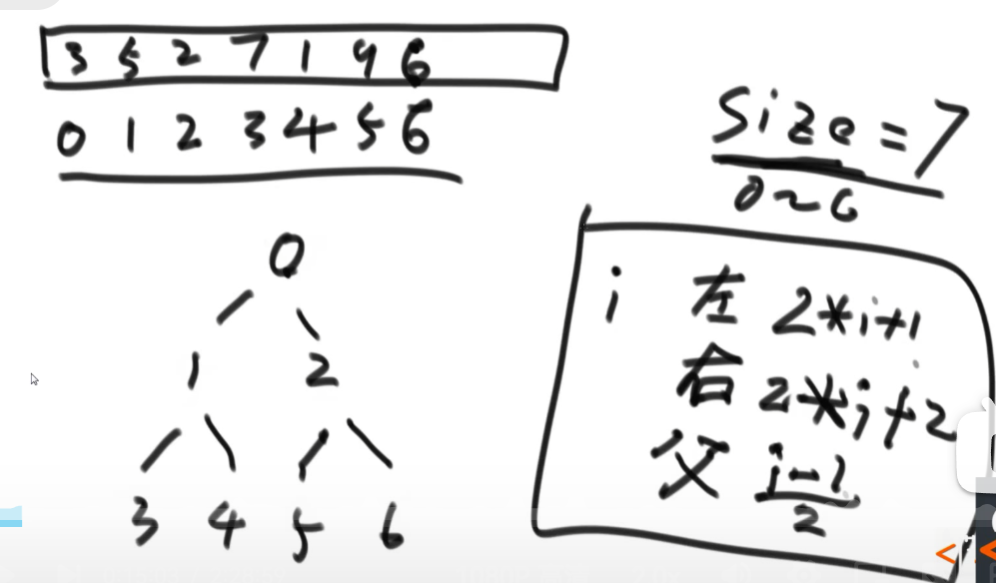 3 5 2 7 1 9 6
0 1 2 3 4 5 6
Size=7
0~6
0
1 2
3 4 5 6
i 左 2*i+1
右 2*i+2
父 i-1
2